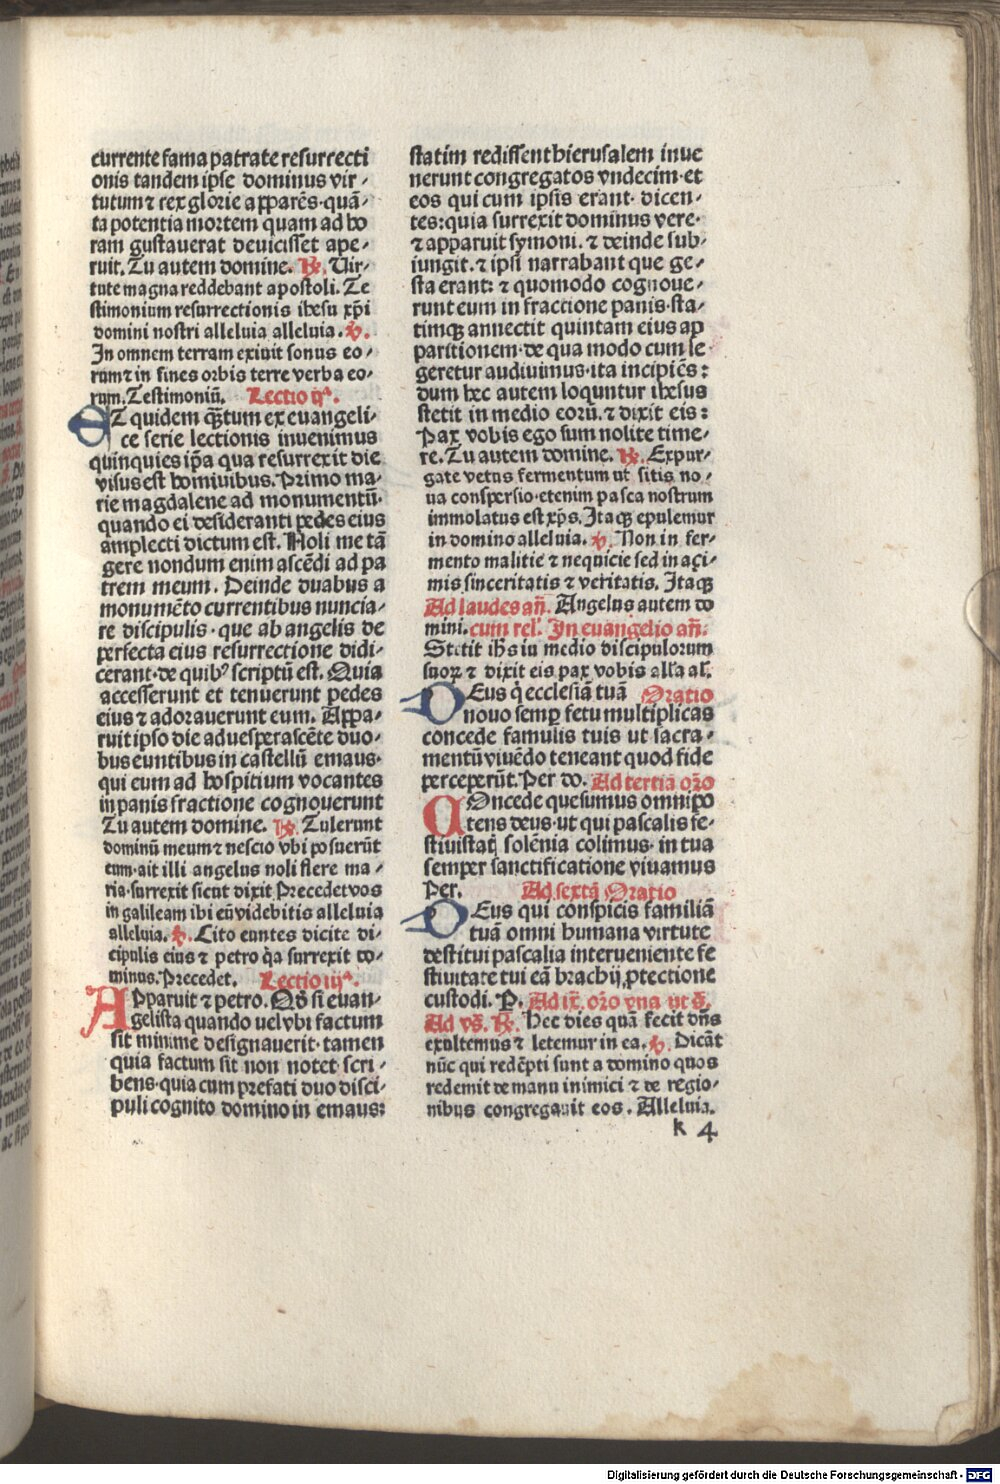 currente fama patrate resurrecti
onis tandem ipse dominus vir⸗
tutum ⁊ rex glorie apparẽs·quã⸗
ta potentia mortem quam ad ho
ram gustauerat deuicisset ape⸗
ruit. Tu autem domine. ℟. Uir⸗
tute magna reddebant apostoli. Te
stimonium resurrectionis ihesu xp̃i
domini nostri alleluia alleluia. ℣.
In omnem terram exiuit sonus eo⸗
rum ⁊ in fines orbis terre verba eo⸗
rum. Testimoniũ. Lectio ijª.
ET quidem q̃tum ex euangeli⸗
ce serie lectionis inuenimus
quinquies ip̃a qua resurrexit die
visus est hominibus. Primo ma⸗
rie magdalene ad monumentũ·
quando ei desideranti pedes eius
amplecti dictum est. Noli me tã
gere nondum enim ascẽdi ad pa
trem meum. Deinde duabus a
monumẽto currentibus nuncia⸗
re discipulis· que ab angelis de
perfecta eius resurrectione didi⸗
cerant·de quibꝰ scriptũ est. Quia
accesserunt et tenuerunt pedes
eius ⁊ adorauerunt eum. Appa⸗
ruit ipso die aduesperascẽte duo⸗
bus euntibus in castellũ emaus·
qui eum ad hospitium vocantes
in panis fractione cognouerunt
Tu autem domine. ℟. Tulerunt
dominũ meum ⁊ nescio vbi posuerũt
eum·ait illi angelus noli flere ma⸗
ria·surrexit sicut dixit Precedet vos
in galileam ibi eũ videbitis alleluia
alleluia. ℣. Cito euntes dicite di⸗
cipulis eius ⁊ petro q̃a surrexit do⸗
minus. Precedet. Lectio iijª.
APparuit ⁊ petro. Qđ si euan⸗
gelista quando uel vbi factum
sit minime designauerit·tamen
quia factum sit non notet scri⸗
bens·quia cum prefati duo disci⸗
puli cognito domino in emaus:
statim redissent hierusalem inue
nerunt congregatos vndecim·et
eos qui cum ipsis erant· dicen⸗
tes:quia surrexit dominus vere·
⁊ apparuit symoni. ⁊ deinde sub⸗
iungit. ⁊ ipsi narrabant que ge⸗
sta erant: ⁊ quomodo cognoue⸗
runt eum in fractione panis·sta⸗
timqꝫ annectit quintam eius ap
paritionem·de qua modo cum le
geretur audiuimus·ita incipiẽs:
dum hec autem loquntur ihesus
stetit in medio eorũ. ⁊ dixit eis:
Pax vobis ego sum nolite time⸗
re. Tu autem domine. ℟. Expur⸗
gate vetus fermentum ut sitis no⸗
ua conspersio·etenim pasca nostrum
immolatus est xp̃s. Itaqꝫ epulemur
in domino alleluia. ℣. Non in fer⸗
mento malitie ⁊ nequicie sed in açi⸗
mis sinceritatis ⁊ veritatis. Itaqꝫ
Ad laudes añ. Angelus autem do
mini. cum rel'. Jn euangelio añ.
Stetit ih̃s iu medio discipulorum
suoꝝ ⁊ dixit eis pax vobis all'a al'.
DEus q̇ ecclesiã tuã Oratio
nouo semꝑ fetu multiplicas
concede famulis tuis ut sacra⸗
mentũ viuẽdo teneant quod fide
perceperũt. Per do. Ad tertiã or̃o
COncede quesumus omnipo
tens deus·ut qui pascalis fe⸗
stiuistatꝭ solẽnia colimus· in tua
semper sanctificatione viuamus
Per. Ad sextã Oratio
DEus qui conspicis familiã
tuã omni humana virtute
destitui pascalia interueniente fe
stiuitate tui eã brachij ꝓtectione
custodi. P. Ad ix̃. or̃o vna ut s̃.
Ad vs̃. ℟. Hec dies quã fecit dñs
exultemus ⁊ letemur in ea. ℣. Dicãt
nũc qui redẽpti sunt a domino quos
redemit de manu inimici ⁊ de regio⸗
nibus congregauit eos. Alleluia.
k 4
Digitalisierung gefördert durch die Deutsche Forschungsgemeinschaft - DFG